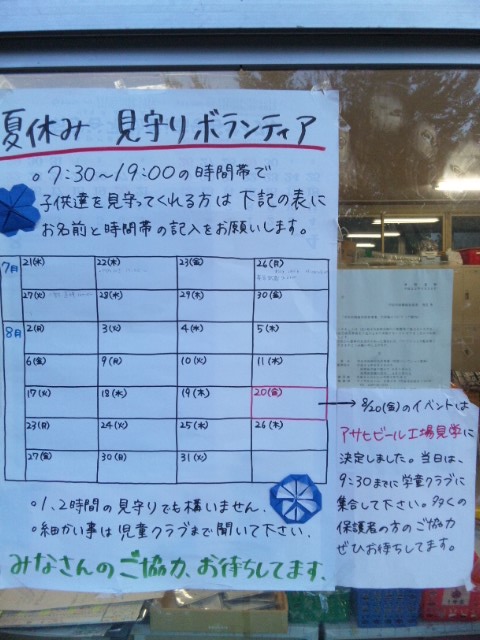 夏休み 見守りボランティア
○7:30～19:00の時間帯で
子供達を見守ってくれる方は下記の表に
お名前と時間帯の記入をお願いします。
7月 21(水) 22(木) 23(金) 26(月)
27(火) 28(水) 29(木) 30(金)
8月 2(月) 3(火) 4(水) 5(木)
6(金) 9(月) 10(火) 11(水)
17(火) 18(水) 19(木) 20(金)
23(月) 24(火) 25(水) 26(木)
27(金) 30(月) 31(火)
→8/20(金)のイベントは
アサヒビール工場見学に
決定しました。当日は、
9:30までに学童クラブに
集合して下さい。多くの
保護者の方のご協力
ぜひお待ちしてます。
○1、2時間の見守りでも構いません。
○細かい事は児童クラブまで聞いて下さい。
みなさんのご協力、お待ちしてます。